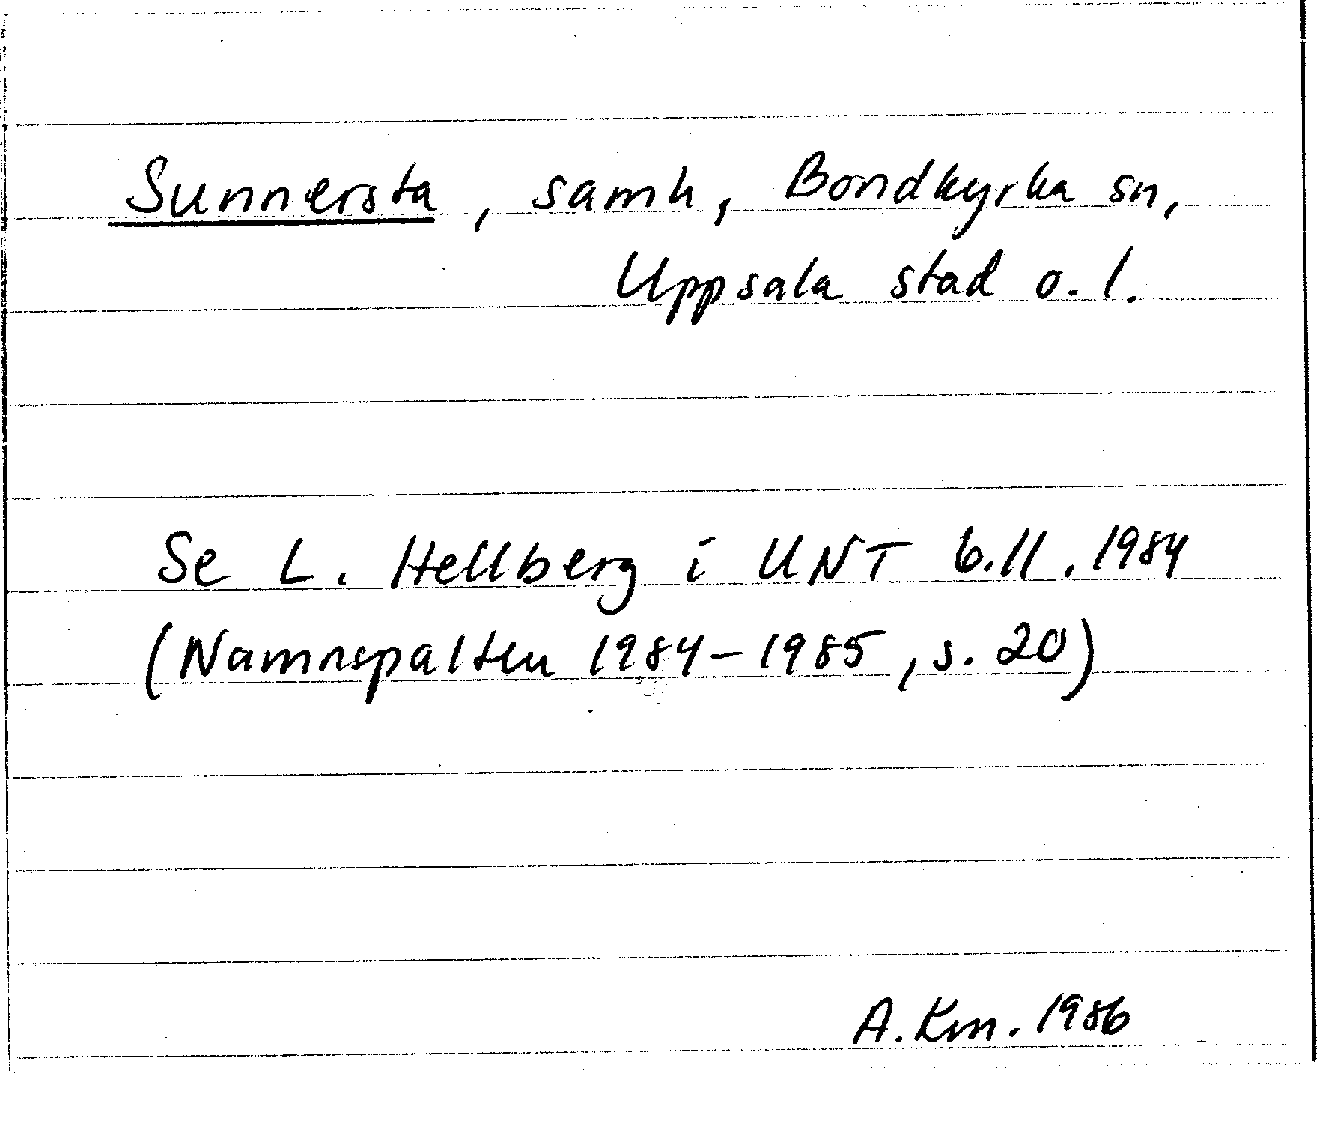 Sunnersta, samh, Bondkyrka sn,
Uppsala stad o. l.
Se L. Hellberg i UNT 6.11.1984
(Namnspalten 1984-1985, s. 20)
A. Km. 1986